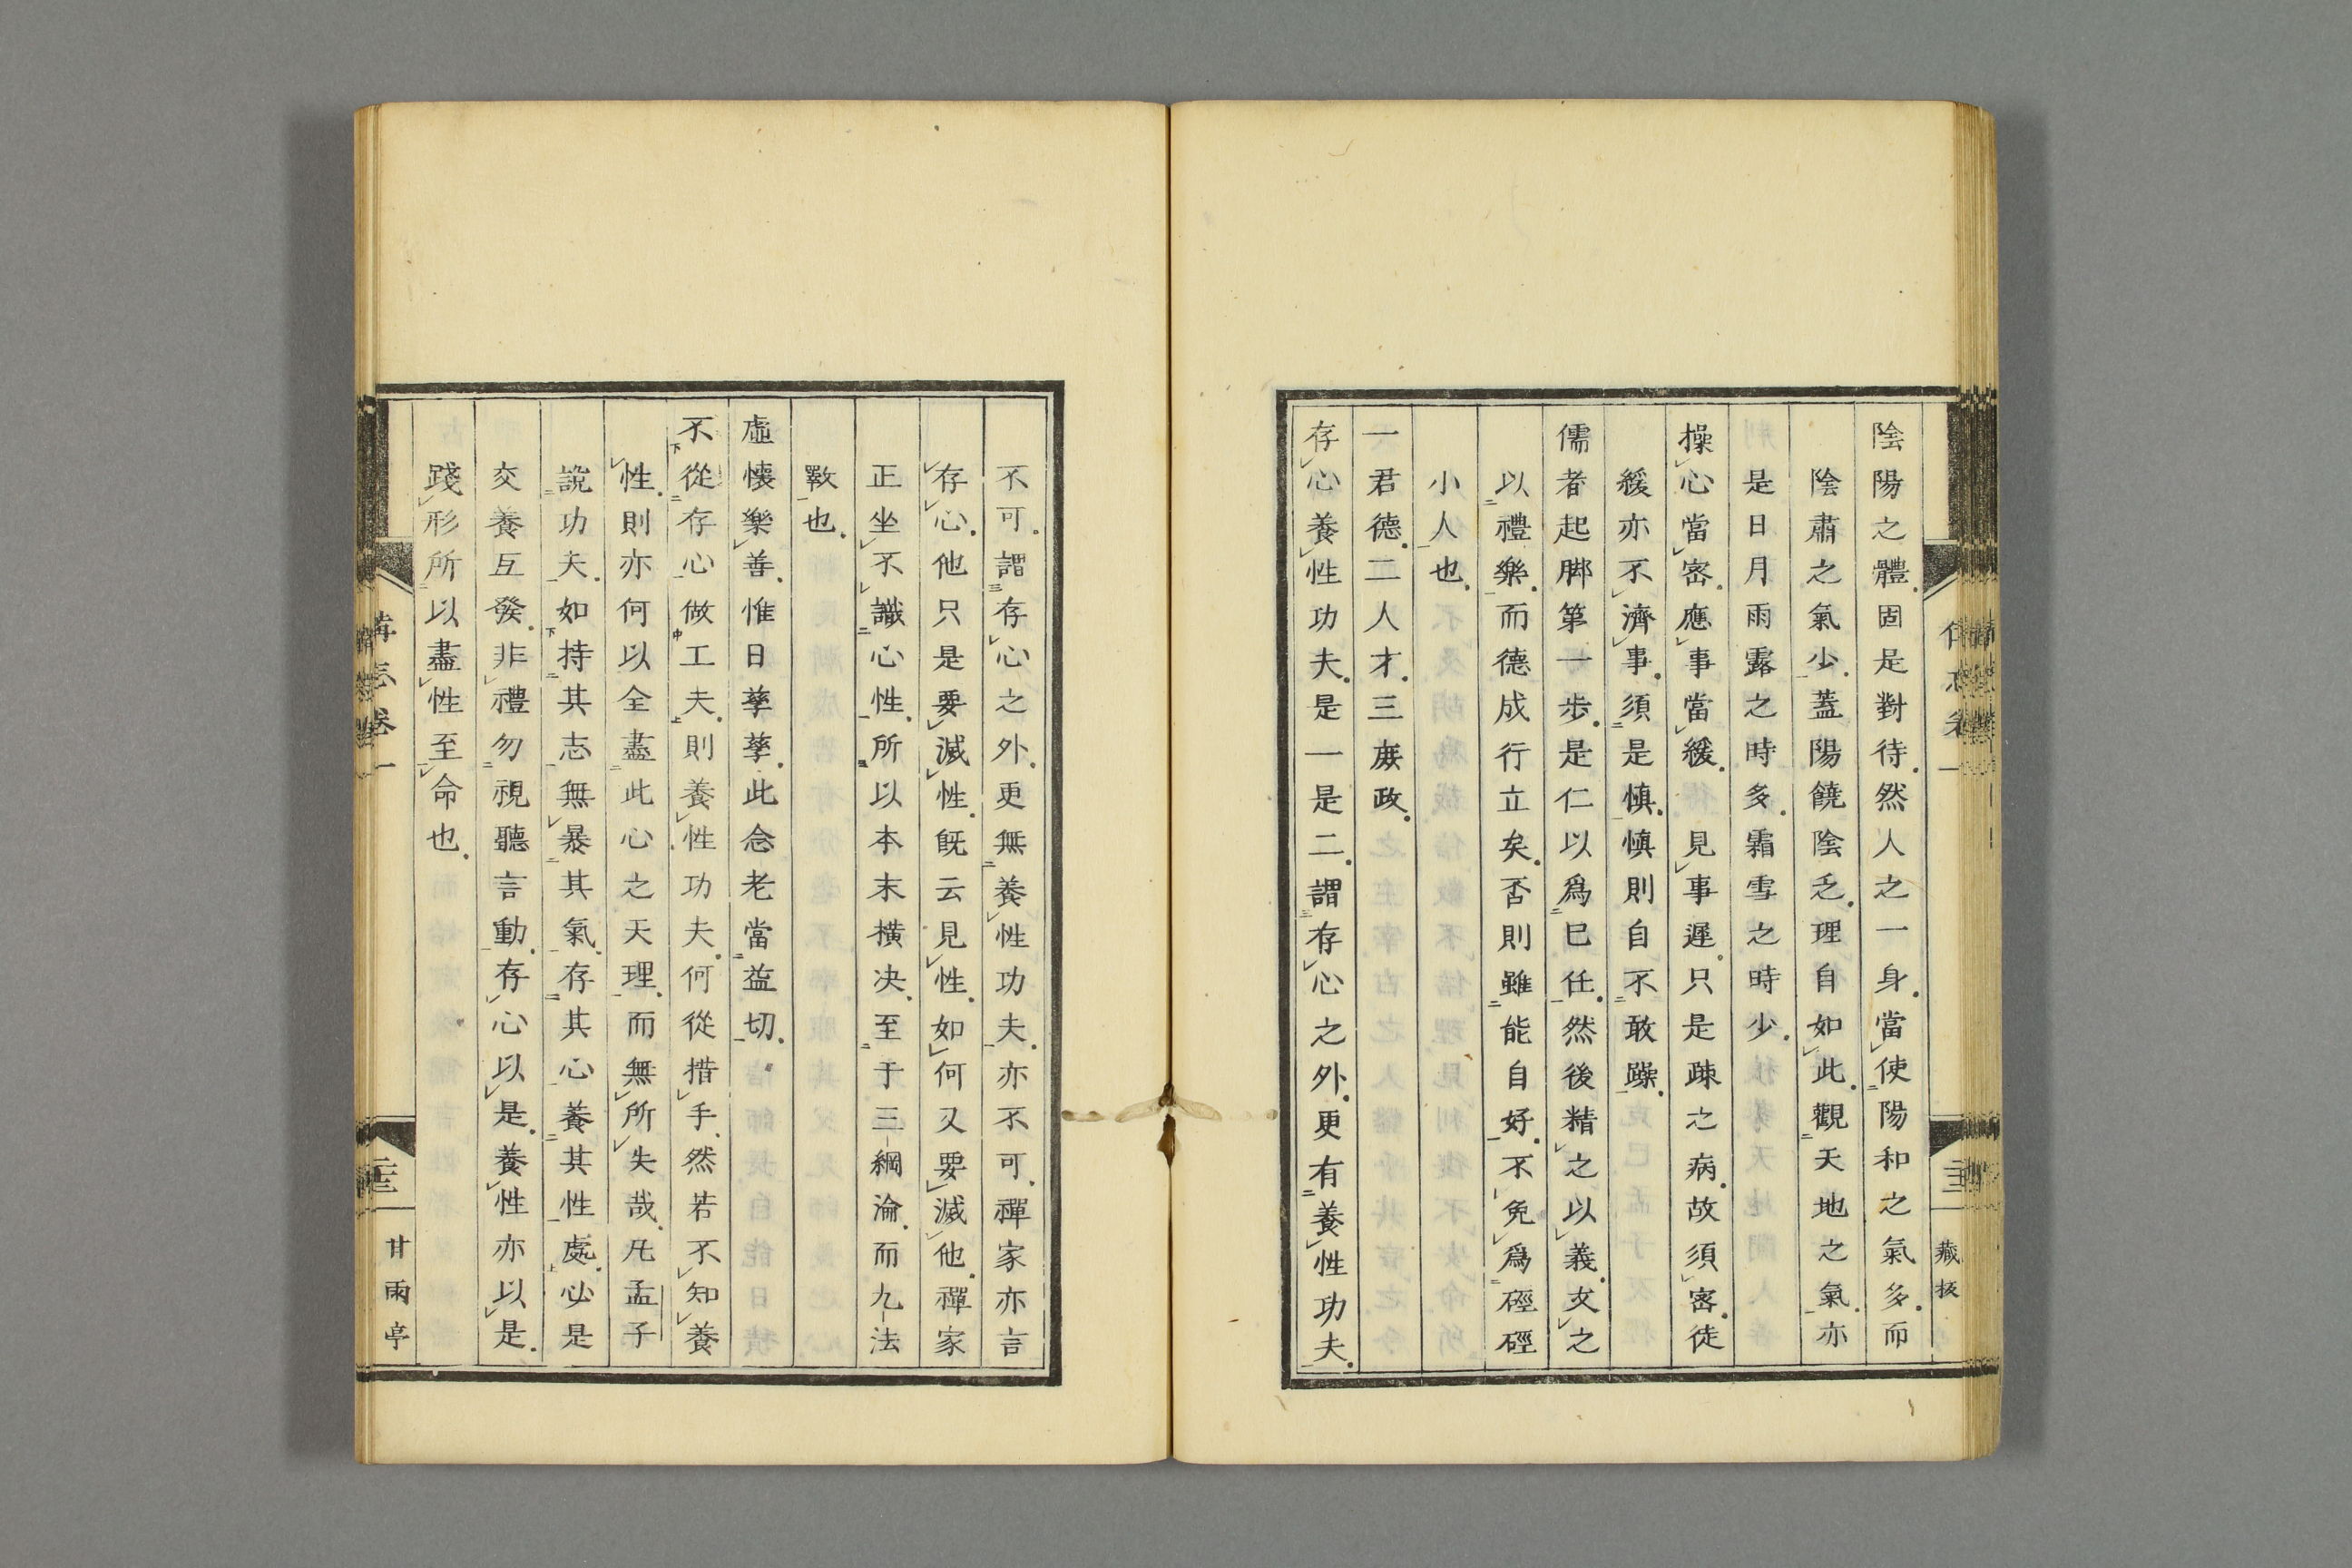 陰陽之體固是對待然人之一身當使陽和之氣多而
陰肅之氣少蓋陽饒陰乏理自如此觀天地之氣亦
是日月雨露之時多霜雪之時少
操心當密應事當緩見事遲只是疎之病故須密徒
緩亦不濟事須是慎慎則自不敢躁
儒者起脚第一步是仁以爲己任然後精之以義文之
以禮樂而德成行立矣否則雖能自好不免爲硜硜
小人也
一君德二人才三庶政
存心養性功夫是一是二謂存心之外更有養性功夫
藏板
不可謂存心之外更無養性功夫亦不可禪家亦言
存心他只是要滅性既云見性如何又要滅他禪家
正坐不識心性所以本末横决至于三綱淪而九法
斁也
虛懷樂善惟日孳孳此念老當益切
不從存心做工夫則養性功夫何從措手然若不知養
性則亦何以全盡此心之天理而無所失哉凡孟子
說功夫如持其志無暴其氣存其心養其性處必是
交養互發非禮勿視聽言動存心以是養性亦以是
踐形所以盡性至命也
志卷一
甘雨亭